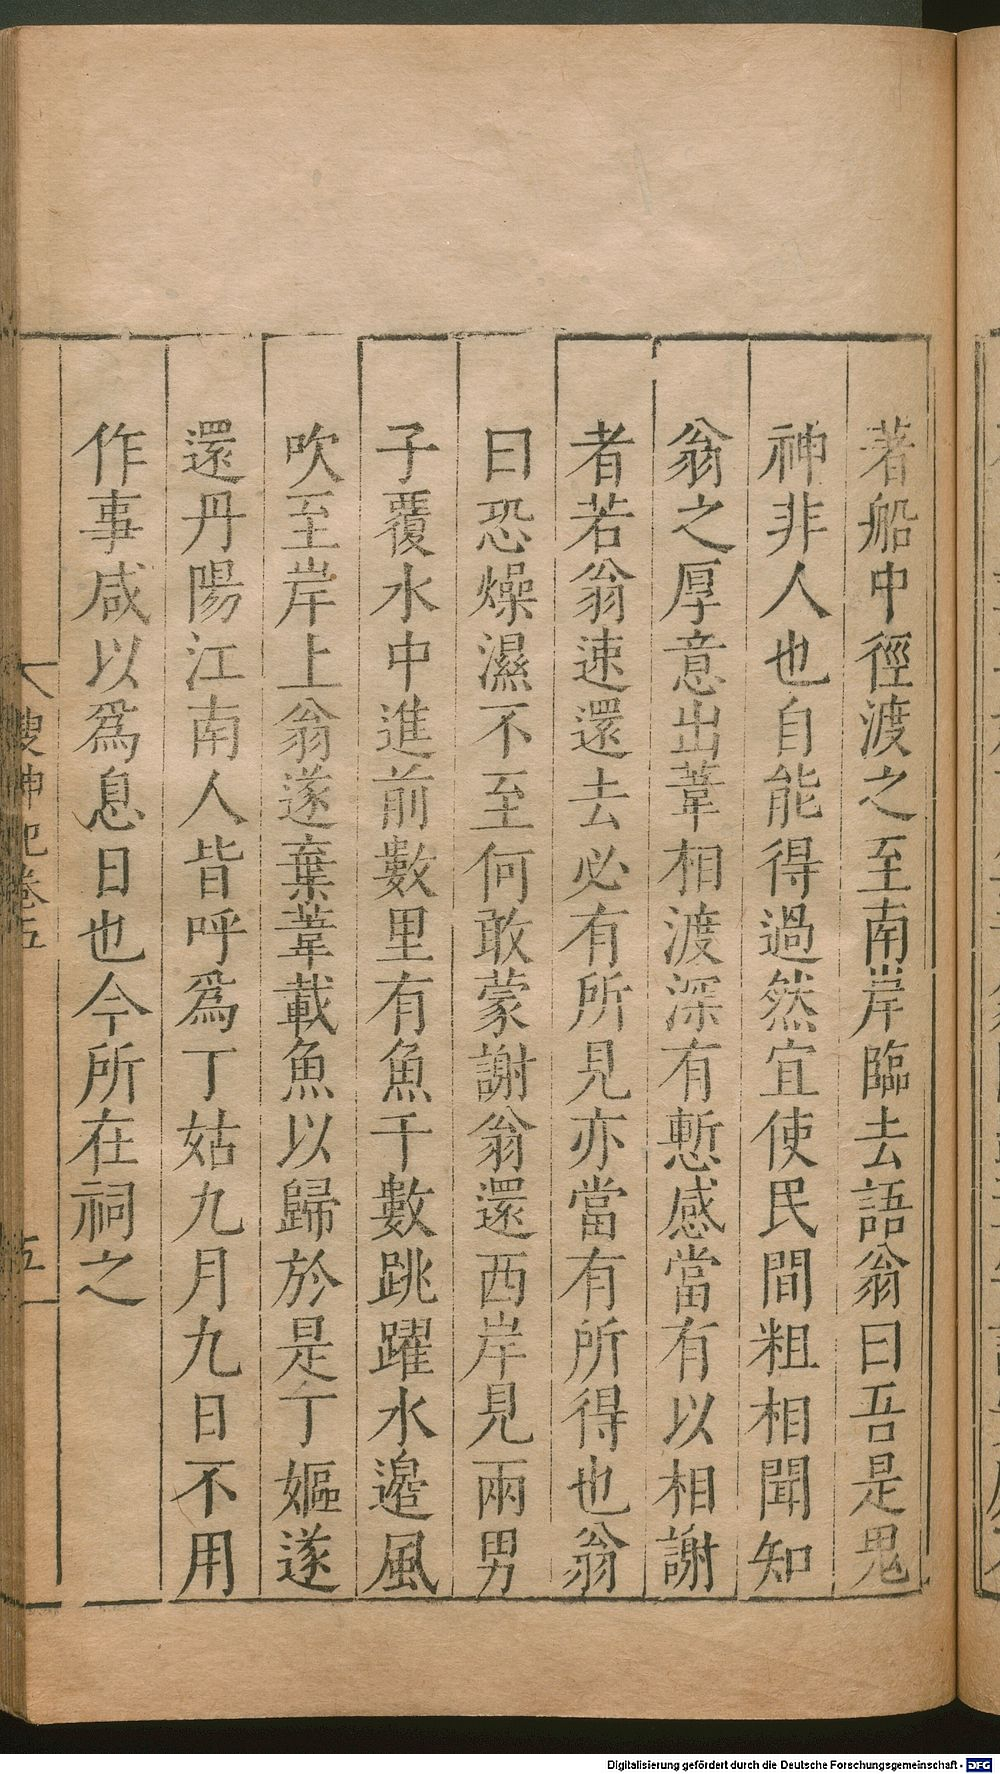 著船中徑渡之至南岸臨去語翁曰吾是鬼
神非人也自能得過然宜使民間粗相聞知
翁之厚意出葦相渡深有慙感當有以相謝
者若翁速還去必有所見亦當有所得也翁
曰恐燥濕不至何敢蒙謝翁還西岸見兩男
子覆水中進前數里有魚千數跳躍水邊風
吹至岸上翁遂棄葦載魚以歸於是丁嫗遂
還丹陽江南人皆呼爲丁姑九月九日不用
作事咸以爲息日也今所在祠之
搜神記卷五
五
Digitalisierung gefördert durch die Deutsche Forschungsgemeinschaft - DFG